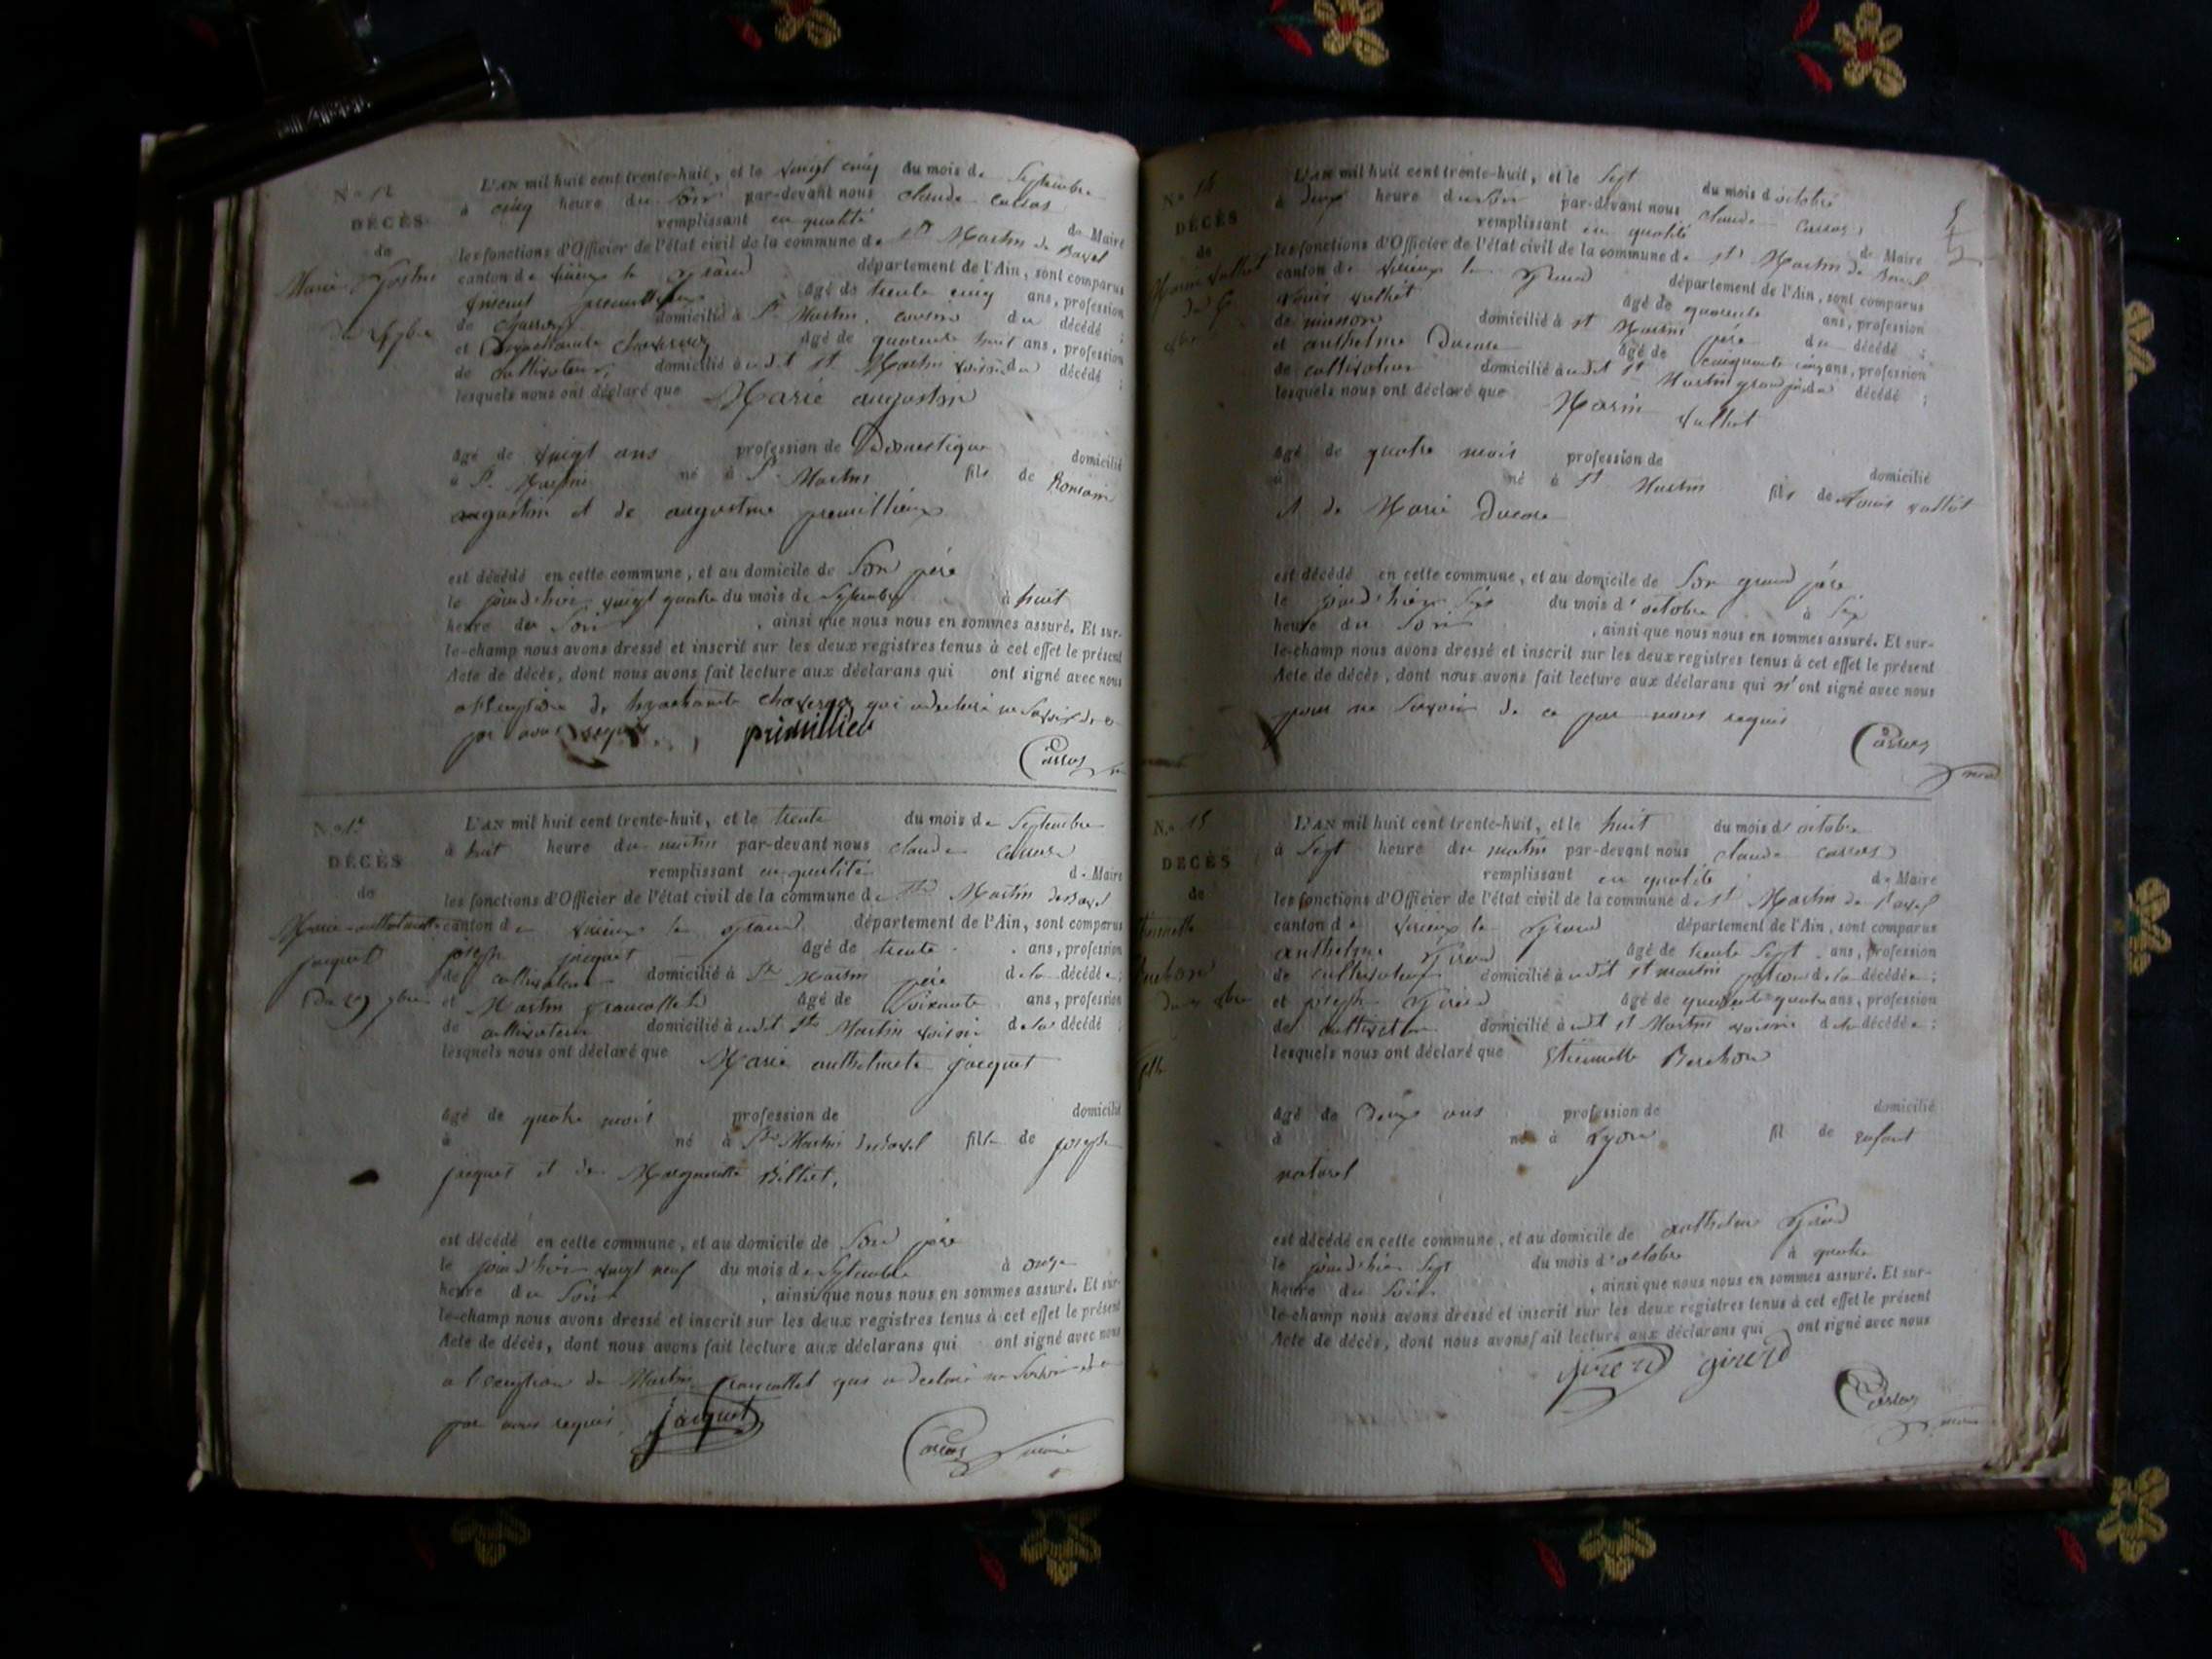 N.º 12
DÉCÈS
de
Marie
L'AN mil huit cent trente-huit, et le vingt cinq du mois de Septembre
à cinq heure du Soir par-devant nous claude carras
remplissant en qualité de Maire
les fonctions d'Officier de l'état civil de la commune de St Martin de Bavel
canton de virieux le Grand département de l'Ain, sont comparus
âgé de trente cinq ans, profession
de domicilié à St Martin, du décédé ;
et âgé de quarante huit ans, profession
de cultivateur, domicilié audit st Martin voisin du décédé ;
lesquels nous ont déclaré que Marie augustin
âgé de vingt ans profession de Domestique domicilié
à St Martin né à St Martin fils de Romain
augustin et de augustine premillieux
est décédé en cette commune, et au domicile de Son père
le jour d'hier vingt quatre du mois de Septembre à huit
heure du Soir , ainsi que nous nous en sommes assuré. Et sur-
le-champ nous avons dressé et inscrit sur les deux registres tenus à cet effet le présent
Acte de décès, dont nous avons fait lecture aux déclarans qui ont signé avec nous
de qui a declaré ne Savoir de ce
par nous requis
Carras
N.º 13
DÉCÈS
de
Marie anthelmette
jacquet
Du 29 7bre
L'AN mil huit cent trente-huit, et le trente du mois de Septembre
à huit heure du matin par-devant nous claude carras
remplissant en qualité de Maire
les fonctions d'Officier de l'état civil de la commune de St Martin de Bavel
canton de virieux le Grand département de l'Ain, sont comparus
joseph jacquet âgé de trente ans, profession
de cultivateur domicilié à St Martin père de la décédée ;
et Martin francallet âgé de Soixante ans, profession
de cultivateur domicilié audit St Martin voisin de la décédé ;
lesquels nous ont déclaré que Marie anthelmete jacquet
âgé de quatre mois profession de domicilié
à né à St Martin de Bavel fille de joseph
jacquet et de Marguerite Billiet.
est décédé en cette commune, et au domicile de Son père
le jour d'hier vingt neuf du mois de Septembre à onze
heure du Soir , ainsi que nous nous en sommes assuré. Et sur-
le-champ nous avons dressé et inscrit sur les deux registres tenus à cet effet le présent
Acte de décès, dont nous avons fait lecture aux déclarans qui ont signé avec nous
a l'exception de Martin francallet qui a declaré ne Savoir de ce
par nous requis. jacquet
Carras maire
N.º 14
DÉCÈS
de
L'AN mil huit cent trente-huit, et le Sept du mois d'octobre
à deux heure du Soir par-devant nous claude carras
remplissant en qualité de Maire
les fonctions d'Officier de l'état civil de la commune de st Martin de Bavel
canton de virieux le Grand département de l'Ain, sont comparus
âgé de quarante ans, profession
de masson domicilié à st Martin père du décédé ;
et anthelme Ducore âgé de cinquante cinq ans, profession
de cultivateur domicilié audit st Martin grand père du décédé ;
lesquels nous ont déclaré que Marin
âgé de quatre mois profession de domicilié
à né à St Martin fils de
et de Marie Ducore
est décédé en cette commune, et au domicile de Son grand père
le jour d'hier Six du mois d'octobre à Six
heure du Soir , ainsi que nous nous en sommes assuré. Et sur-
le-champ nous avons dressé et inscrit sur les deux registres tenus à cet effet le présent
Acte de décès, dont nous avons fait lecture aux déclarans qui n'ont signé avec nous
pour ne Savoir de ce par nous requis
Carras
maire
N.º 15
DÉCÈS
de
L'AN mil huit cent trente-huit, et le huit du mois d'octobre
à Sept heure du matin par-devant nous claude carras
remplissant en qualité de Maire
les fonctions d'Officier de l'état civil de la commune de st Martin de Bavel
canton de virieux le Grand département de l'Ain, sont comparus
anthelme Girod âgé de trente Sept ans, profession
de cultivateur domicilié audit st martin de la décédée ;
et joseph Girod âgé de quarante quatre ans, profession
de cultivateur domicilié audit st Martin voisin de la décédée ;
lesquels nous ont déclaré que Etiennette Berchon
âgé de Deux ans profession de domicilié
à né à Lyon fil de enfant
naturel
est décédé en cette commune, et au domicile de anthelme Girod
le jour d'hier Sept du mois d'octobre à quatre
heure du Soir , ainsi que nous nous en sommes assuré. Et sur-
le-champ nous avons dressé et inscrit sur les deux registres tenus à cet effet le présent
Acte de décès, dont nous avons fait lecture aux déclarans qui ont signé avec nous
Carras
maire